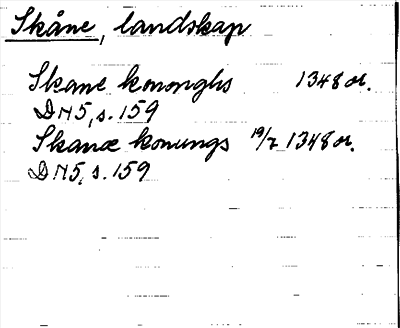 Skåne, landskap
Skane kononghs 1348 or.
DN 5, s. 159
Skanæ konungs 19/7 1348 or.
DN 5, s. 159